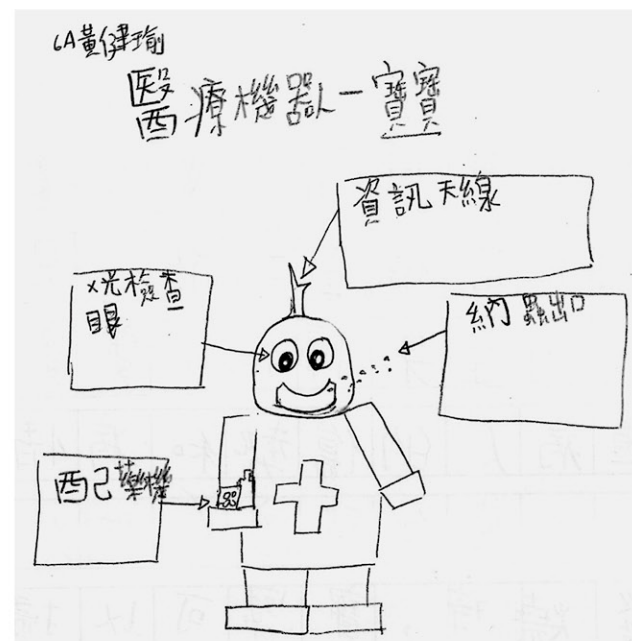 6A黃健瑜
醫療機器人一寶寶
資訊天線
X光檢查
眼
納蟲出口
配藥機